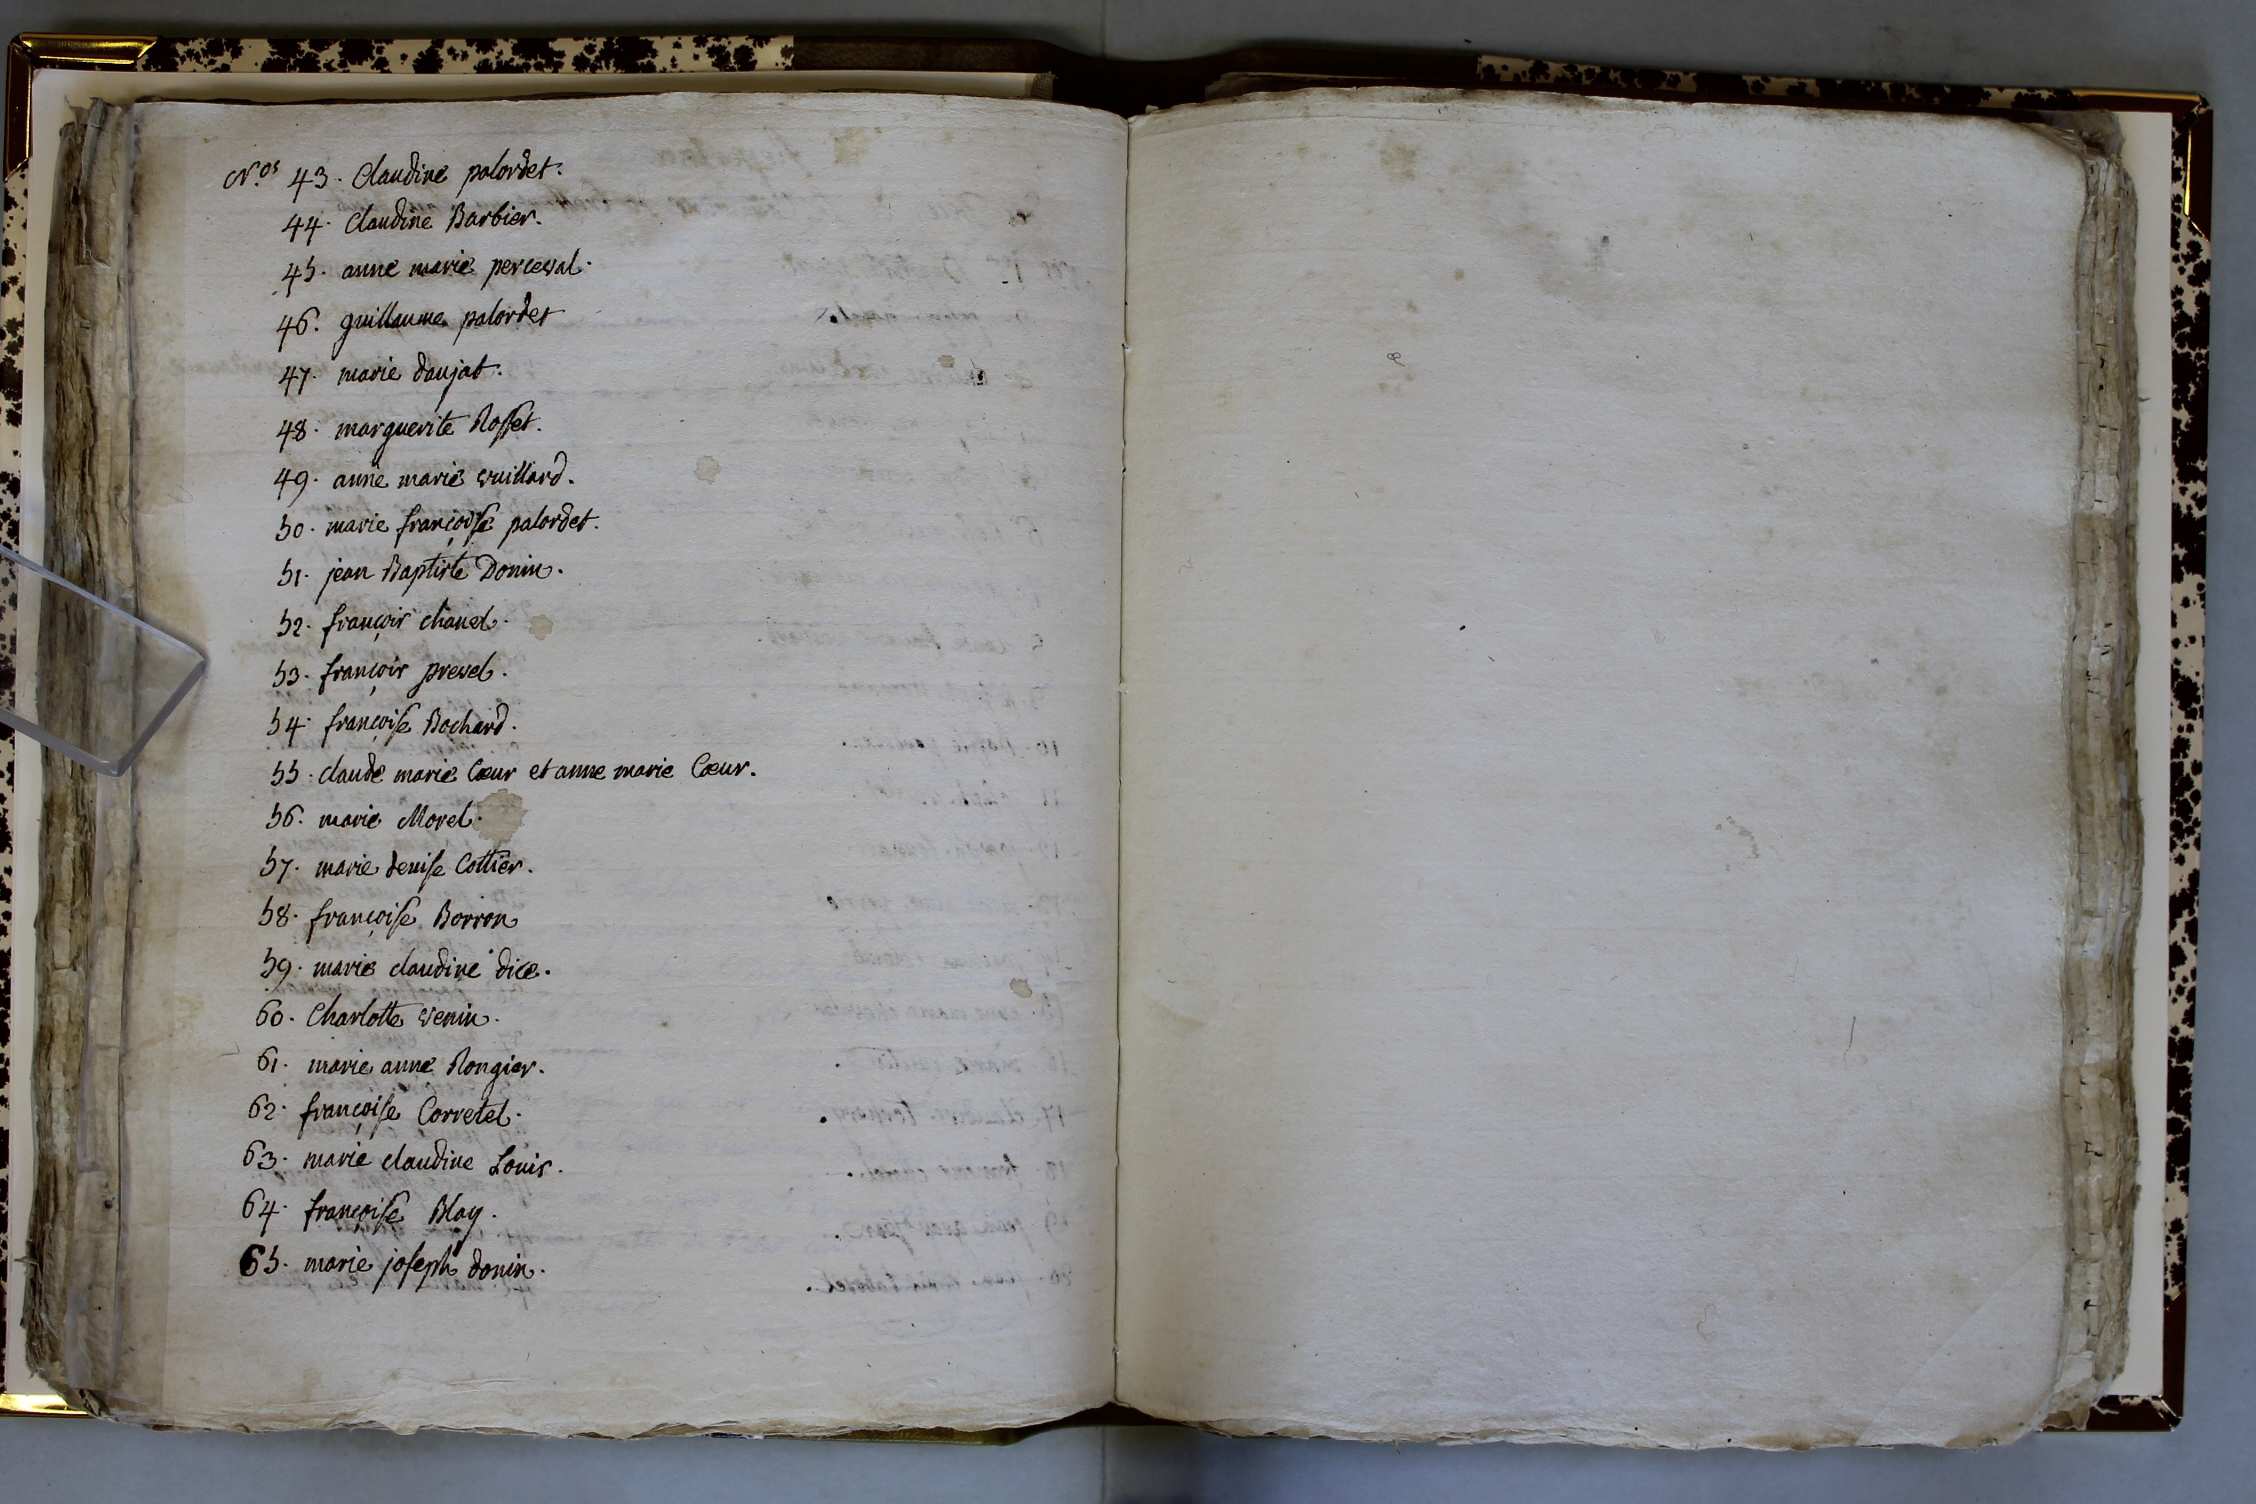 N.os 43. Claudine palordet.
44. Claudine Barbier.
45. anne marie perceval.
46. guillaume palordet
47. marie daujat.
48. marguerite Rosset.
49. anne marie vuillard.
50. marie françoise palordet.
51. jean Baptiste Donin.
52. françois chanel.
53. françois prevel.
54. françoise Bochard.
55. claude marie Cœur et anne marie Cœur.
56. marie Morel.
57. marie denise Cottier.
58. françoise Borron
59. marie claudine dice.
60. Charlotte venin.
61. marie anne Rongier.
62. françoise Corretel.
63. marie claudine Louis.
64. françoise Blay.
65. marie joseph donin.